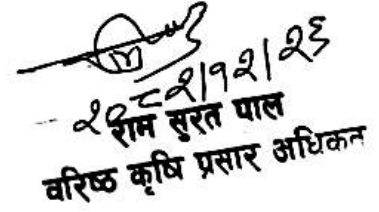 २०८२/१२/२६
राम सुरत पाल
वरिष्ठ कृषि प्रसार अधिकृत